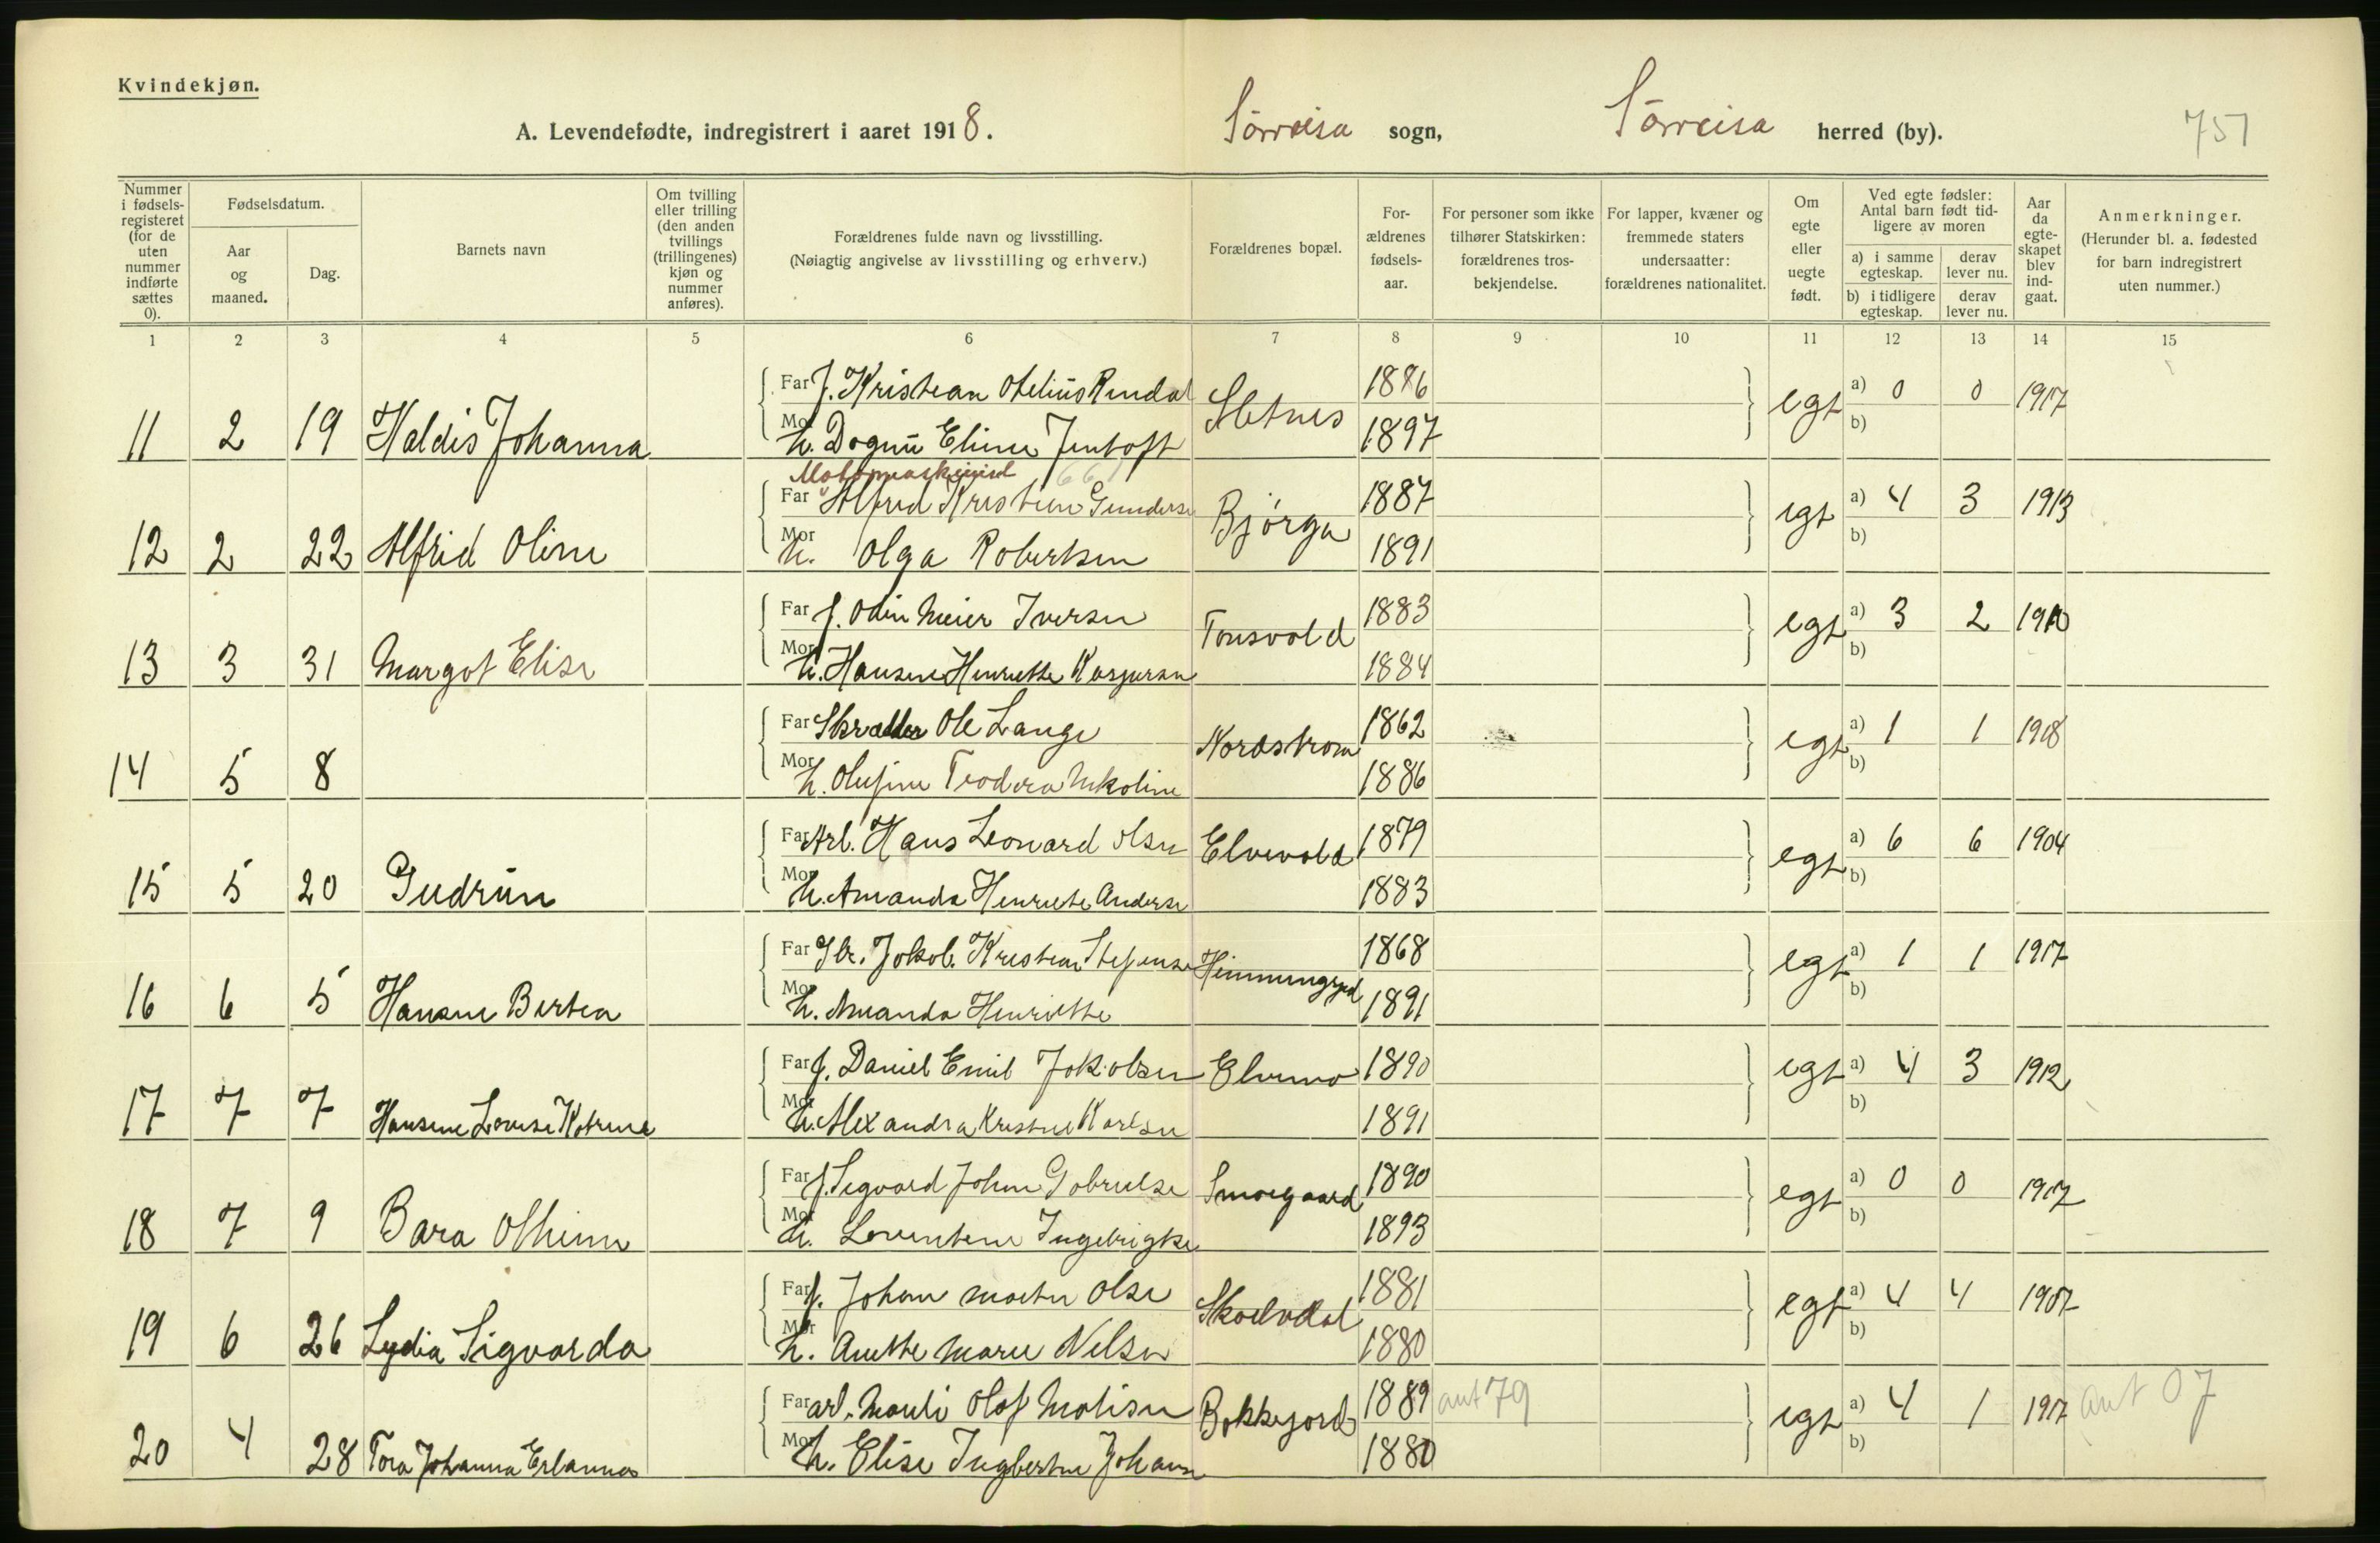 Kvindekjøn.
A. Levendefødte, indregistrert i aaret 1918. Sørreisa sogn, Sørreisa herred (by). 751
Nummer i fødselsregisteret (for de uten nummer indførte sættes 0).
Fødselsdatum.
Aar og maaned.
Dag.
Barnets navn
Om tvilling eller trilling (den anden tvillings (trillingenes) kjøn og nummer anføres).
Forældrenes fulde navn og livsstilling.
(Nøiagtig angivelse av livsstilling og erhverv.)
Forældrenes bopæl.
For-ældrenes fødsels-aar.
For personer som ikke tilhører Statskirken: forældrenes tros-bekjendelse.
For lapper, kvæner og fremmede staters undersaatter: forældrenes nationalitet.
Om egte eller uegte født.
Ved egte fødsler: Antal barn født tid-ligere av moren
a) i samme egteskap. derav lever nu.
b) i tidligere egteskap. derav lever nu.
Aar da egte-skapet blev ind-gaat.
Anmerkninger.
(Herunder bl. a. fødested for barn indregistrert uten nummer.)
1 2 3 4 5 6 7 8 9 10 11 12 13 14 15
Far f. Kristian Otelius Rendal Sletnes 1886 egt a) 0 0 1917
11 2 19 Haldis Johanna Mor h. Dagny Eline Jentoft 1897 b)
Motormaskinist 661
Far Alfred Kristian Gunderse Bjørga 1887 egt a) 4 3 1913
12 2 22 Alfrid Oline Mor h. Olga Robertsen 1891 b)
Far f. Odin Meier Iversen Tonsvold 1883 egt a) 3 2 1910
13 3 31 Margot Elise Mor h. Hansine Henriette Kaspersen 1884 b)
Far Skrædder Ole Lange Nordstrom 1862 egt a) 1 1 1918
14 5 8 Mor h. Olufine Teodora Nikoline 1886 b)
Far Arb. Hans Leonard Olsen Elvevold 1879 egt a) 6 6 1904
15 5 20 Gudrun Mor h. Amanda Henriete Anderse 1883 b)
Far Gbr. Jakob Kristian Stefense 1868 egt a) 1 1 1917
16 6 5 Hansine Bertea Mor h. Amanda Henriette 1891 b)
Far f. Daniel Emil Jakobsen Elvemo 1890 egt a) 4 3 1912
17 7 7 Hansine Lovise Katrine Mor h. Alexandra Kristine Karlsen 1891 b)
Far f. Sigvard Johan Gabrielse Smørgaard 1890 egt a) 0 0 1917
18 7 9 Bara Mor h. Lorentine Ingebrigtse 1893 b)
Far f. Johan Martin Olse Skøelvdal 1881 egt a) 4 4 1907
19 6 26 Lydia Sigvarda Mor h. Anette Marie Nilsen 1880 b)
Far arb. Olaf Matisen Bakkejord 1889 ant 79 egt a) 4 1 1917 ant 07
20 4 28 Tora Johanna Erlanna Mor h. Elise Ingbertine Johans 1880 b)